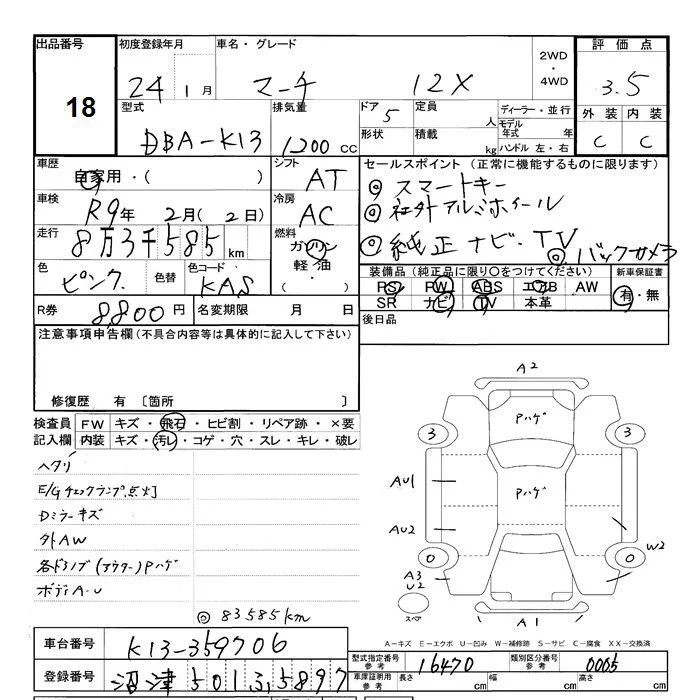 出品番号 初度登録年月 車名・グレード 2WD・4WD 評価点
18 24 1月 マーチ 12X 3.5
型式 排気量 ドア 5 定員 人 ディーラー・並行 外装 内装
DBA-K13 1200cc 形状 積載 kg モデル年式 年 ハンドル 左・右 C C
車歴 自家用・( ) シフト AT セールスポイント(正常に機能するものに限ります)
◎スマートキー
車検 R9年 2月(2日) 冷房 AC ◎社外アルミホイール
走行 8万3千585km 燃料 ガソリン 軽・油 ・( ) ◎純正ナビ・TV ◎バックカメラ
色 ピンク 色替 色コード KAS 装備品(純正品に限り○をつけてください) 新車保証書
PS PW ABS エアB AW 有・無
SR ナビ TV 本革
R券 8800円 名変期限 月 日 後日品
注意事項申告欄(不具合内容等は具体的に記入して下さい)
修復歴 有 〔箇所 〕
検査員 FW キズ・飛石・ヒビ割・リペア跡・×要
記入欄 内装 キズ・汚レ・コゲ・穴・スレ・キレ・破レ
ヘタリ
E/Gチェックランプ点灯
Dミラーキズ
外AW
各ドアノブ(アウター)Pハゲ
ボディA・U
◎83585km
A2
Pハゲ
3 3
AU1 Pハゲ
AU2 W2
0 0
A3
U2
スペア A1
A-キズ E-エクボ U-凹み W-補修跡 S-サビ C-腐食 XX-交換済
車台番号 K13-359706 型式指定番号 参考 16470 類別区分番号 参考 0005
登録番号 沼津501 3 5897 車庫証明用 参考 長さ cm 幅 cm 高さ cm